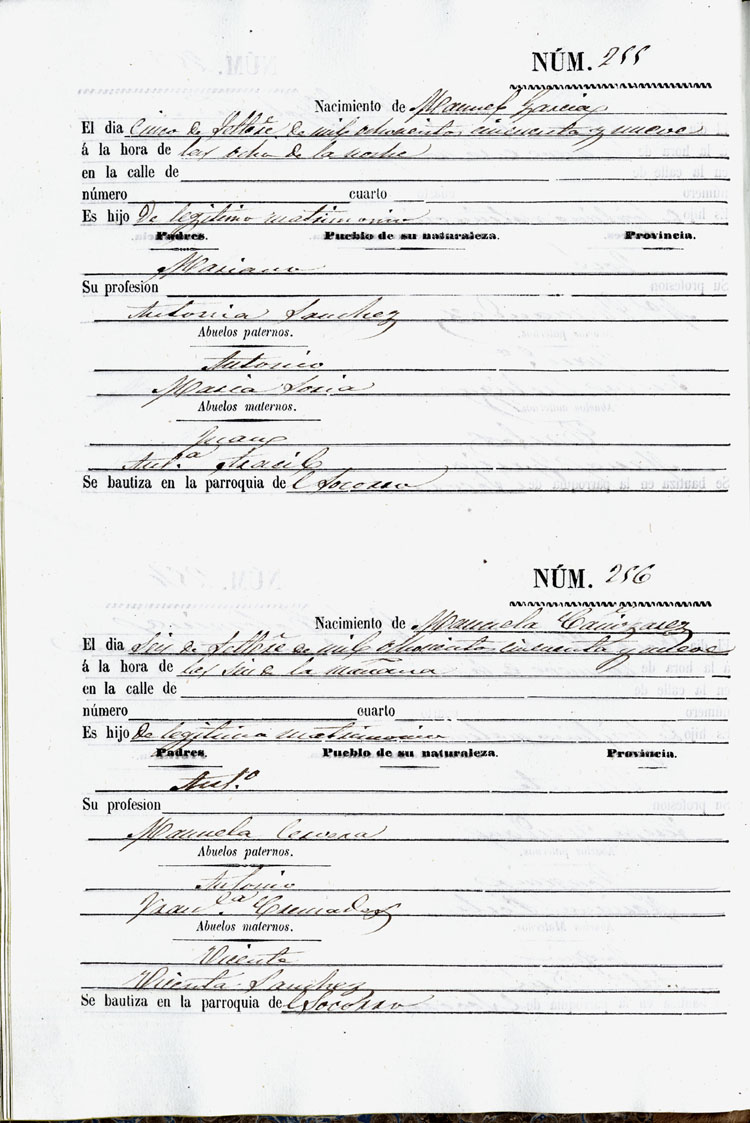 NÚM. 255
Nacimiento de Manuel Garcia
El dia Cinco de Settbre de mil ochocientos cincuenta y nueve
á la hora de las ocho de la noche
en la calle de
número cuarto
Es hijo De legitimo matrimonio
Padres. Pueblo de su naturaleza. Provincia.
Mariano
Su profesion
Antonia Sanchez
Abuelos paternos.
Antonio
Maria Soria
Abuelos maternos.
Juan
Ant.a Gracil
Se bautiza en la parroquia del Socorro
NÚM. 256
Nacimiento de Manuela Cañizares
El dia Seis de Settbre de mil ochocientos cincuenta y nueve
á la hora de las seis de la mañana
en la calle de
número cuarto
Es hijo De legitimo matrimonio
Padres. Pueblo de su naturaleza. Provincia.
Ant.o
Su profesion
Manuela Cervera
Abuelos paternos.
Antonio
Fran.ca Cremades
Abuelos maternos.
Vicente
Vicenta Sanchez
Se bautiza en la parroquia del Socorro